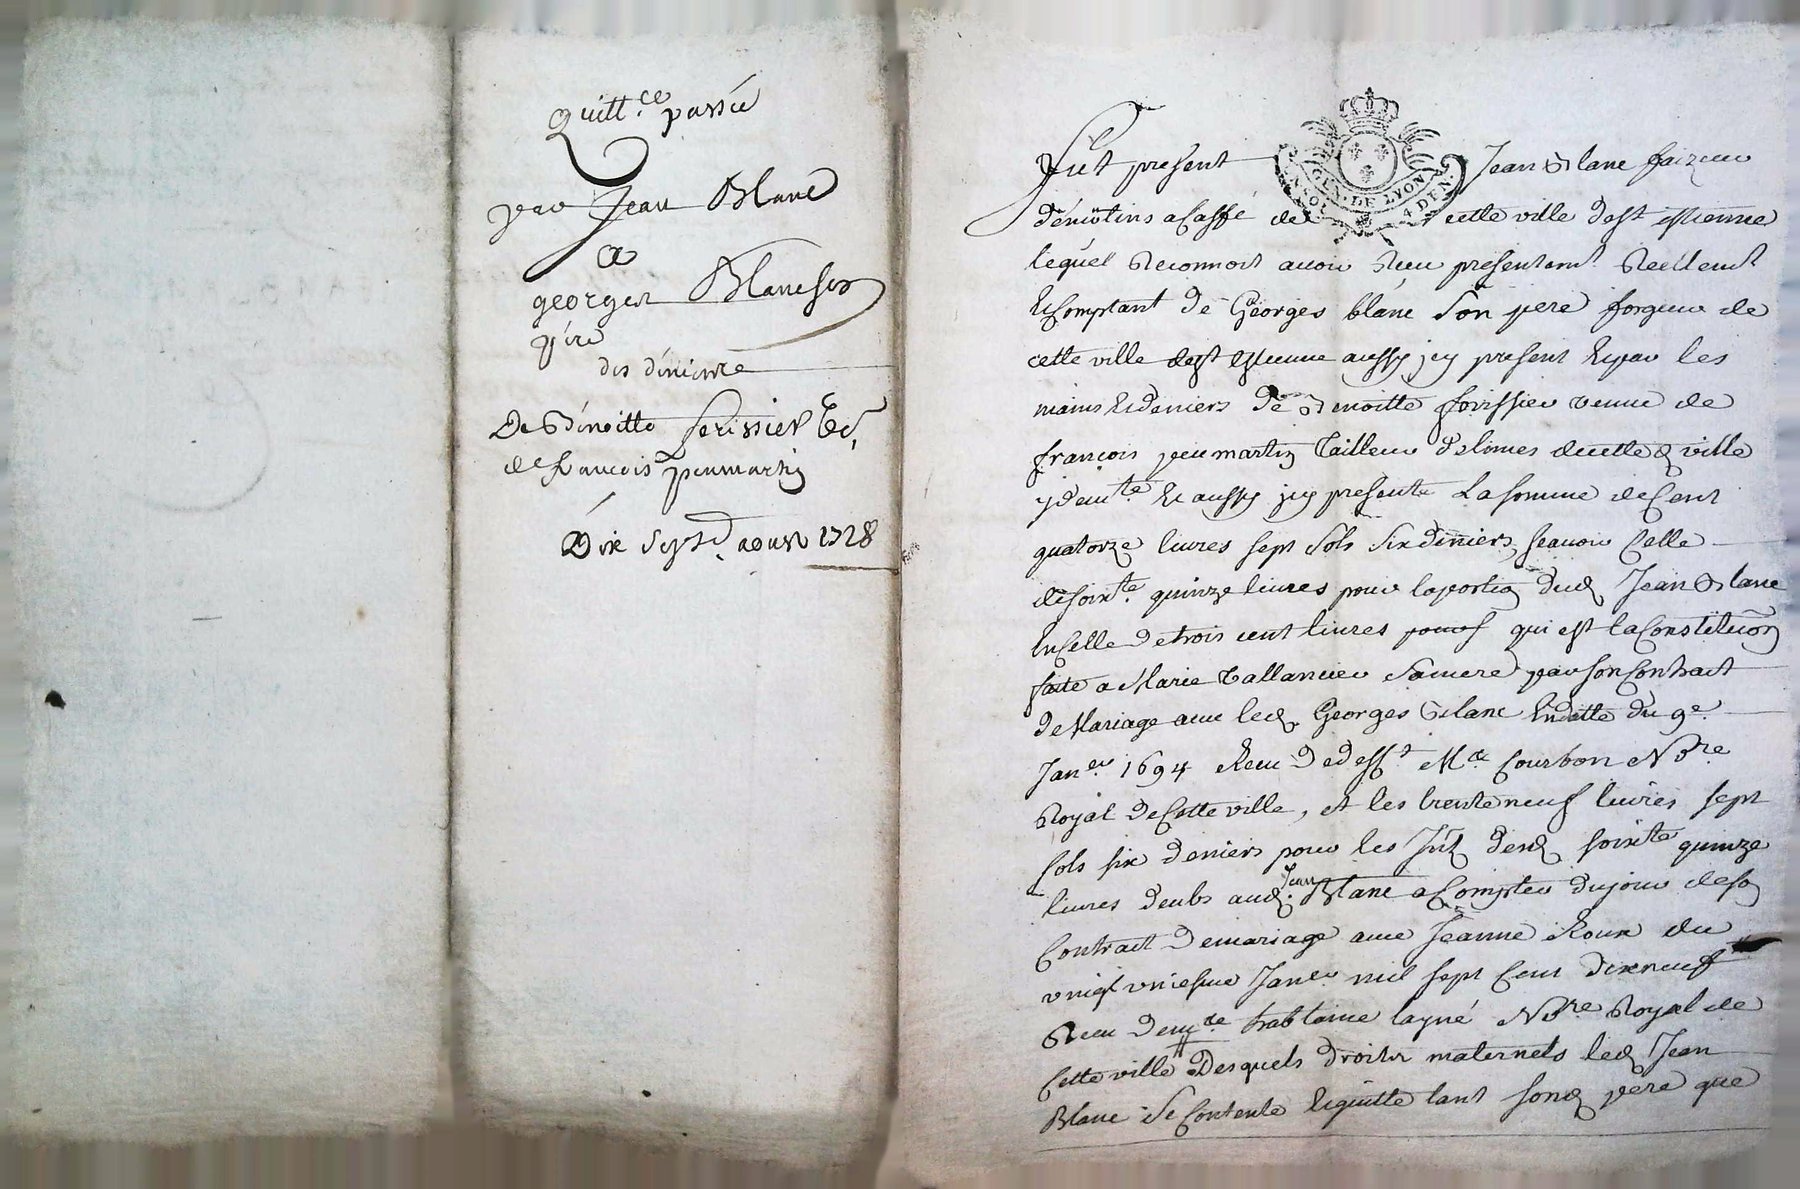 Quitt.ce passée
par Jean Blanc
a
georges Blanc son
père
des deniers
De Benoitte ferissier
de francois peumartin
Dix Sept aoust 1728
GEN. DE LYON
UN SOL 4 DEN.
Fut present Jean Blanc faizeur
démoulins a Caffé de cette ville de st estienne
lequel Reconnoit avoir Receu presentemt. Reellemt
&Comptant de Georges blanc Son pere forgeur de
cette ville de st estienne aussy icy present & par les
mains & deniers de Benoitte ferissier veuve de
francois peumartin Tailleur de limes de cette d ville
& aussy icy presente La somme de Cent
quatorze livres sept sols six deniers, scavoir Celle
de soixte. quinze livres pour la portion dud Jean Blanc
en Celle de trois cent livres qui est la Constitution
faite a Marie Tallancieu Sa mere par son Contract
de Mariage avec led. Georges Blanc en datte du 9e.
Janer. 1694 Receu Me Courbon No.re
Royal de Cette ville, et les trente neuf livres sept
sols six deniers pour les Int. desd soixte quinze
livres deubs aud. Jean Blanc a Compter du jour de son
Contract de mariage avec Jeanne Roux du
vingt uniesme Janer. mil sept Cent dix neuf
Receu de me. layné No.re Royal de
Cette ville Desquels droits maternels led Jean
Blanc Se Contente & quitte tant sond père que